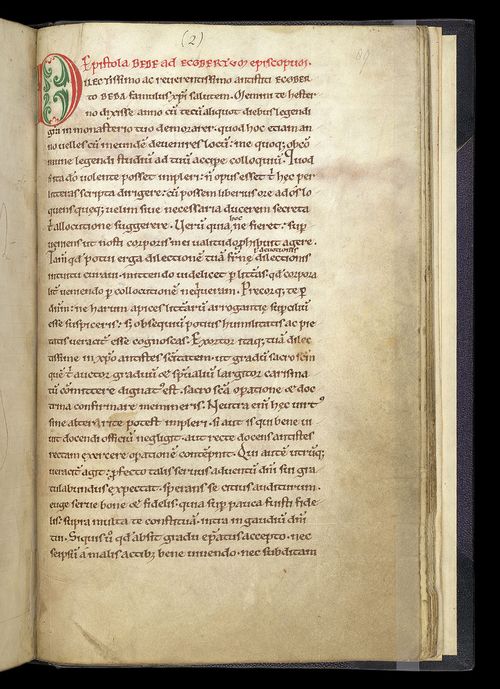 (2)
89
Epistola BEDE AD ECGBERTUM episcopum.
DILECTISSIMO ac reverentissimo antistiti ECGBER
TO BEDA famulus xp̄i salutem. Memini te hester
no dixisse anno cū tecū aliquot diebus legendi
gr̄a in monasterio tuo demorarer. quod hoc etiam an
no velles cū in eundē devenires locū. me quoq; ob cō
mune legendi studiū ad tuū accipe colloquiū. Quod
si ita dō volente posset impleri. n̄ opus esset t̄ hec per
litteras scripta dirigere. cū possem liberius ore ad os lo
quens queq; uelim siue necessaria ducerem secreta
t̄ allocutione suggerere. Uerū quia hoc ne fieret. sup̄
ueniens ut nosti corporis mei ualitudo phibuit agere.
Tam̄ qd̄ potui erga dilectionē tuā fr̄nę deuotionis
intuitu curaui. mittendo uidelicet p litt̄as qd̄ corpora
lit̄ ueniendo p collocutionē neq̄ueram. Precorq; te p
dn̄m. ne harum apices litt̄arū arrogantię supciliū
esse suspiceris. s; obsequiū potius humilitatis ac pie
tatis ueracit̄ esse cognoscas. Exortor itaq; tuā dilec
tissime in xp̄o antistes sc̄itatem. ut gradū sacrosc̄m
quē t̄ auctor graduū & sp̄ualiū largitor carismā
tū cōmittere dignat̄ est. sacrosc̄a opatione & doc
trina confirmare memineris. Neutra eni hec uirtꝰ
sine altera rite potest impleri. si aut is qui bene ui
uit docendi officiū negligit. aut recte docens antistes
rectam exercere opationē contēpnit. Qui autē utrūq;
ueracit̄ agit. pfecto talis seruus aduentū dn̄i sui gra
tulabundus expectat. sperans se citius auditurum.
euge serue bone & fidelis. quia sup pauca fuisti fide
lis. supra multa te constituā. intra in gaudiū dn̄i
tui. Siquis u̇ qd̄ absit gradu ep̄atus accepto. nec
seipsū a malis actib; bene uiuendo. nec subditam